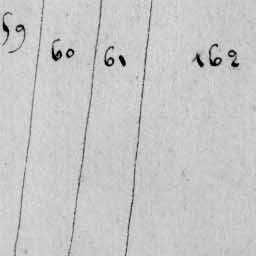 59
60
61
162